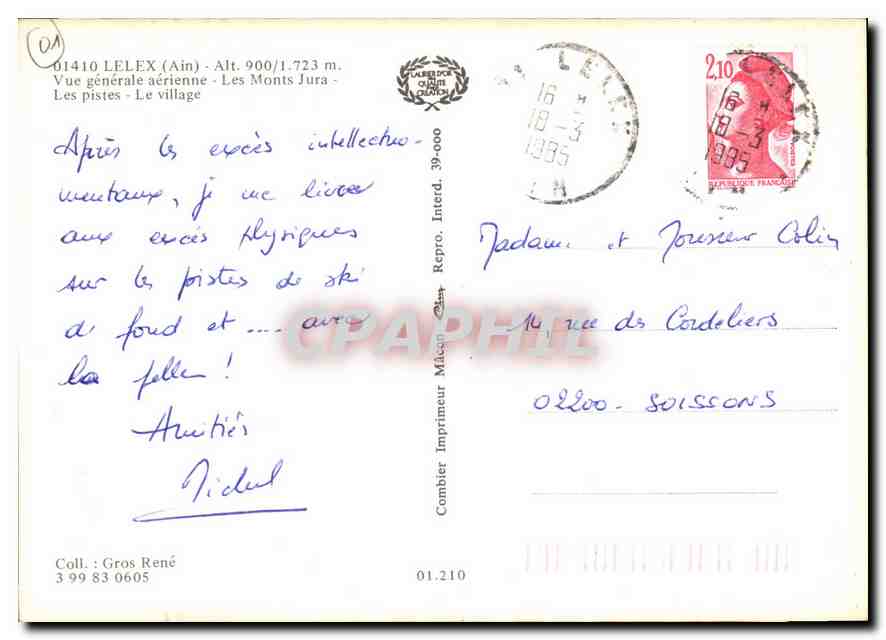 01
01410 LELEX (Ain) - Alt. 900/1.723 m.
Vue générale aérienne - Les Monts Jura -
Les pistes - Le village
LAURIER D'OR
DE
QUALITÉ
CRÉATION
LELEX
16 H
18-3
1985
AIN
2,10
LELEX
16 H
18-3
1985
AIN
REPUBLIQUE FRANÇAISE
Après les excès intellectuo-
mentaux, je me livre
aux excès physiques
sur les pistes de ski
de fond et .... avec
la pelle !
Amitiés
Michel
Combier Imprimeur Mâcon Cim Repro. Interd. 39-000
Madame et Monsieur Colin
14, rue des Cordeliers
02200 - SOISSONS
CPAPHIL
Coll. : Gros René
3 99 83 0605
01.210